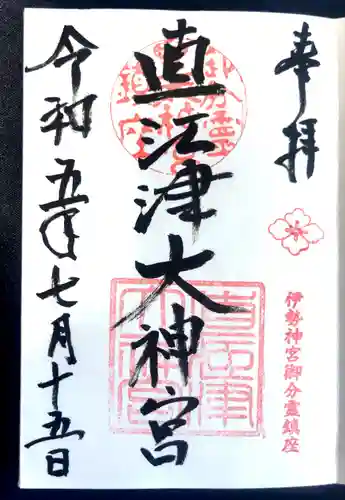 奉拝
伊勢神宮御分霊鎮座
直江津大神宮
令和五年七月十五日